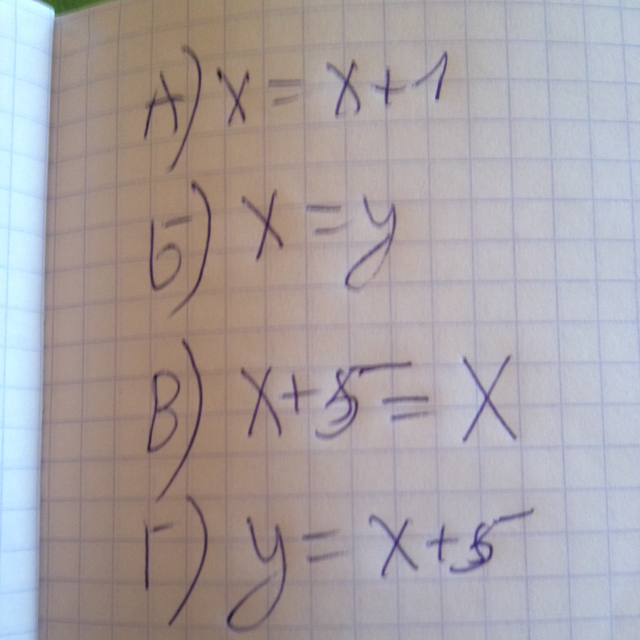 А) x = x + 1
Б) x = y
В) x + 5 = x
Г) y = x + 5